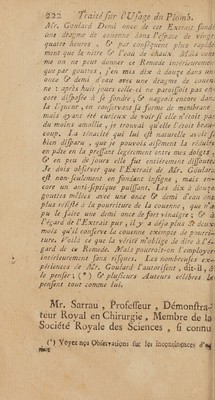 222 Traité sur l'Usage du Plomb.
Mr. Goulard Demi once de cet Extrait fonde
une dragme de couenne dans l'espace de vingt
quatre heures, & par conséquent plus rapide-
ment que le nitre & l'eau de chaux. Mais com-
me on ne peut donner ce Remede intérieurement
que par gouttes, j'en mis dix à douze dans une
once & demi d'eau avec une dragme de couen-
ne : après huit jours celle-ci ne paroissoit pas en-
core disposée à se fondre, & nageoit encore dans
la Liqueur, en conservant sa forme de membrane
mais ayant été curieux de voir si elle n'étoit pas
du moins amollie, je trouvai qu'elle l'étoit beau-
coup. La ténacité qui lui est naturelle avoit si
bien disparu, que je pouvois aisément la réduire
en pâte en la pressant légérement entre mes doigts,
& en peu de jours elle fut entiérement dissoute.
Je dois observer que l'Extrait de Mr. Goulard
est non-seulement un fondant insigne, mais en-
core un anti-septique puissant. Les dix à douze
gouttes mêlées avec une once & demi d'eau ont
plus résisté à la pourriture de la couenne, que n'a
pu le faire une demi once de fort vinaigre ; & à
l'égard de l'Extrait pur, il y a déja plus de deux
mois qu'il conserve la couenne exempte de pourri-
ture. Voilà ce que la vérité m'oblige de dire à l'é-
gard de ce Remede. Mais pourroit-on l'employer
intérieurement sans risques. Les nombreuses ex-
périences de Mr. Goulard l'autorisent, dit-il, à
le penser ; (*) & plusieurs Auteurs célébres le
pensent tout comme lui.
Mr. Sarrau, Professeur, Démonstra-
teur Royal en Chirurgie, Membre de la
Société Royale des Sciences, si connu
(*) Voyez nos Observations sur les inconvéniens d'en